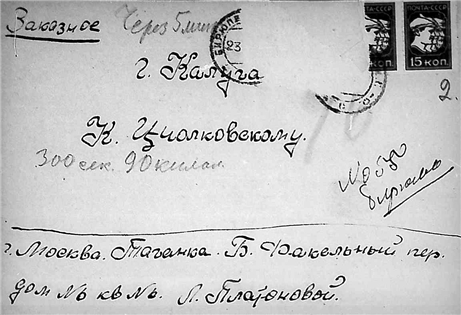 Заказное Через 5 мин
ПОЧТА СССР
БИРЮЛЕ
23
15 КОП.
КОП.
г. Калуга
2.
К. Циолковскому.
300 сек. 90 килом
№
Бирюль
г. Москва. Таганка. Б. Факельный пер.
дом № кв №. Л. Платоновой.